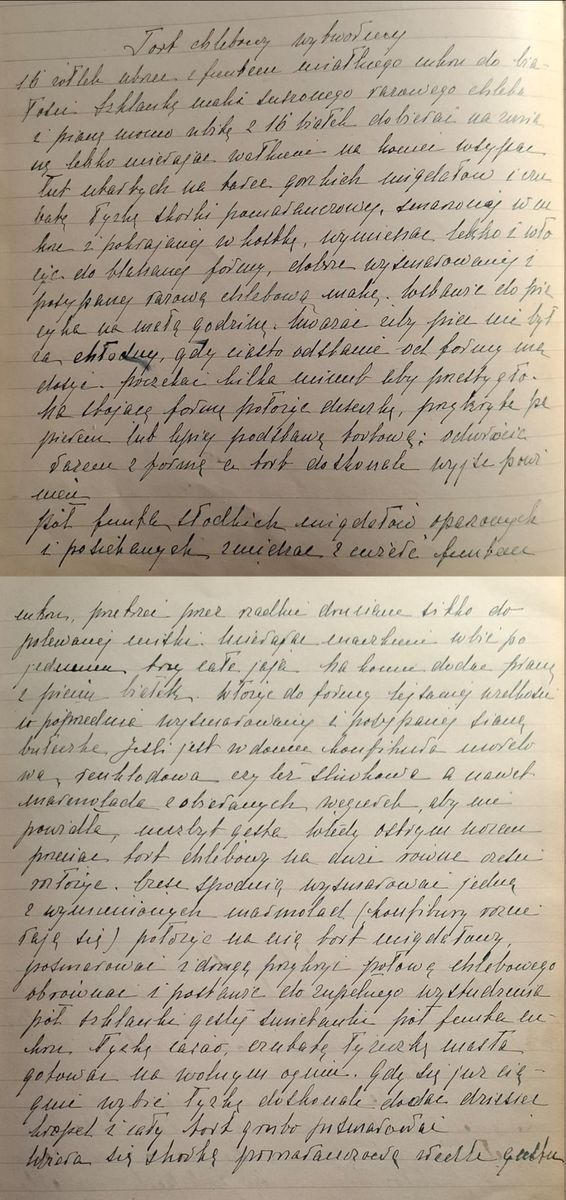 Tort chlebowy wykwintny
16 żółtek utrzeć z funtem miałkiego cukru do bia-
łości Szklankę mąki suszonego razowego chleba
i pianę mocno ubitą z 16 białek dobierać na zmia
nę lekko mieszając wałkiem na końcu wsypać
łut utartych na tarce gorzkich migdałów i czu
batą łyżkę skórki pomarańczowej, smażonej w cu
krze i pokrajanej w kostkę, wymieszać lekko i wło
żyć do blaszanej formy, dobrze wysmarowanej i
posypanej razową chlebową mąką. Wstawić do pie
cyka na małą godzinę. Uważać żeby piec nie był
za chłodny, gdy ciasto odstanie od formy ma
dosyć. poczekać kilka minut aby przestygło.
Na stojącą formę położyć deseczkę, przykrytą pa
pierem lub lepiej podstawę tortową; odwrócić
razem z formą a tort doskonale wyjść powi
nien
Pół funta słodkich migdałów oparzonych
i posiekanych zmieszać z ćwierć funtem
cukru, przetrzeć przez rzadkie druciane sitko do
polewanej miski. Mieszając wbić po
jednemu trzy całe jaja Na końcu dodać pianę
z pięciu białek. Włożyć do formy tej samej wielkości
co poprzednia wysmarowanej i posypanej
bułeczką Jeśli jest w domu konfitura morelo
wa, renklodowa czy też śliwkowa a nawet
marmolada z obieranych węgierek, aby nie
powidła, niezbyt gęsta wtedy ostrym nożem
przeciąć tort chlebowy na dwie równe części
rozłożyć. Część spodnią wysmarować jedną
z wymienionych marmolad (konfitury rozcie
rają się) położyć na nią tort migdałowy,
posmarować i drugą przykryć połową chlebowego
obrównać i postawić do zupełnego wystudzenia
pół szklanki gęstej śmietanki pół funta cu-
kru łyżkę cacao, czubatą łyżeczkę masła
gotować na wolnym ogniu. Gdy się już cią-
gnie wybić łyżką doskonale dodać dziesięć
kropel i cały tort grubo posmarować
Ubiera się skórką pomarańczową wedle gustu